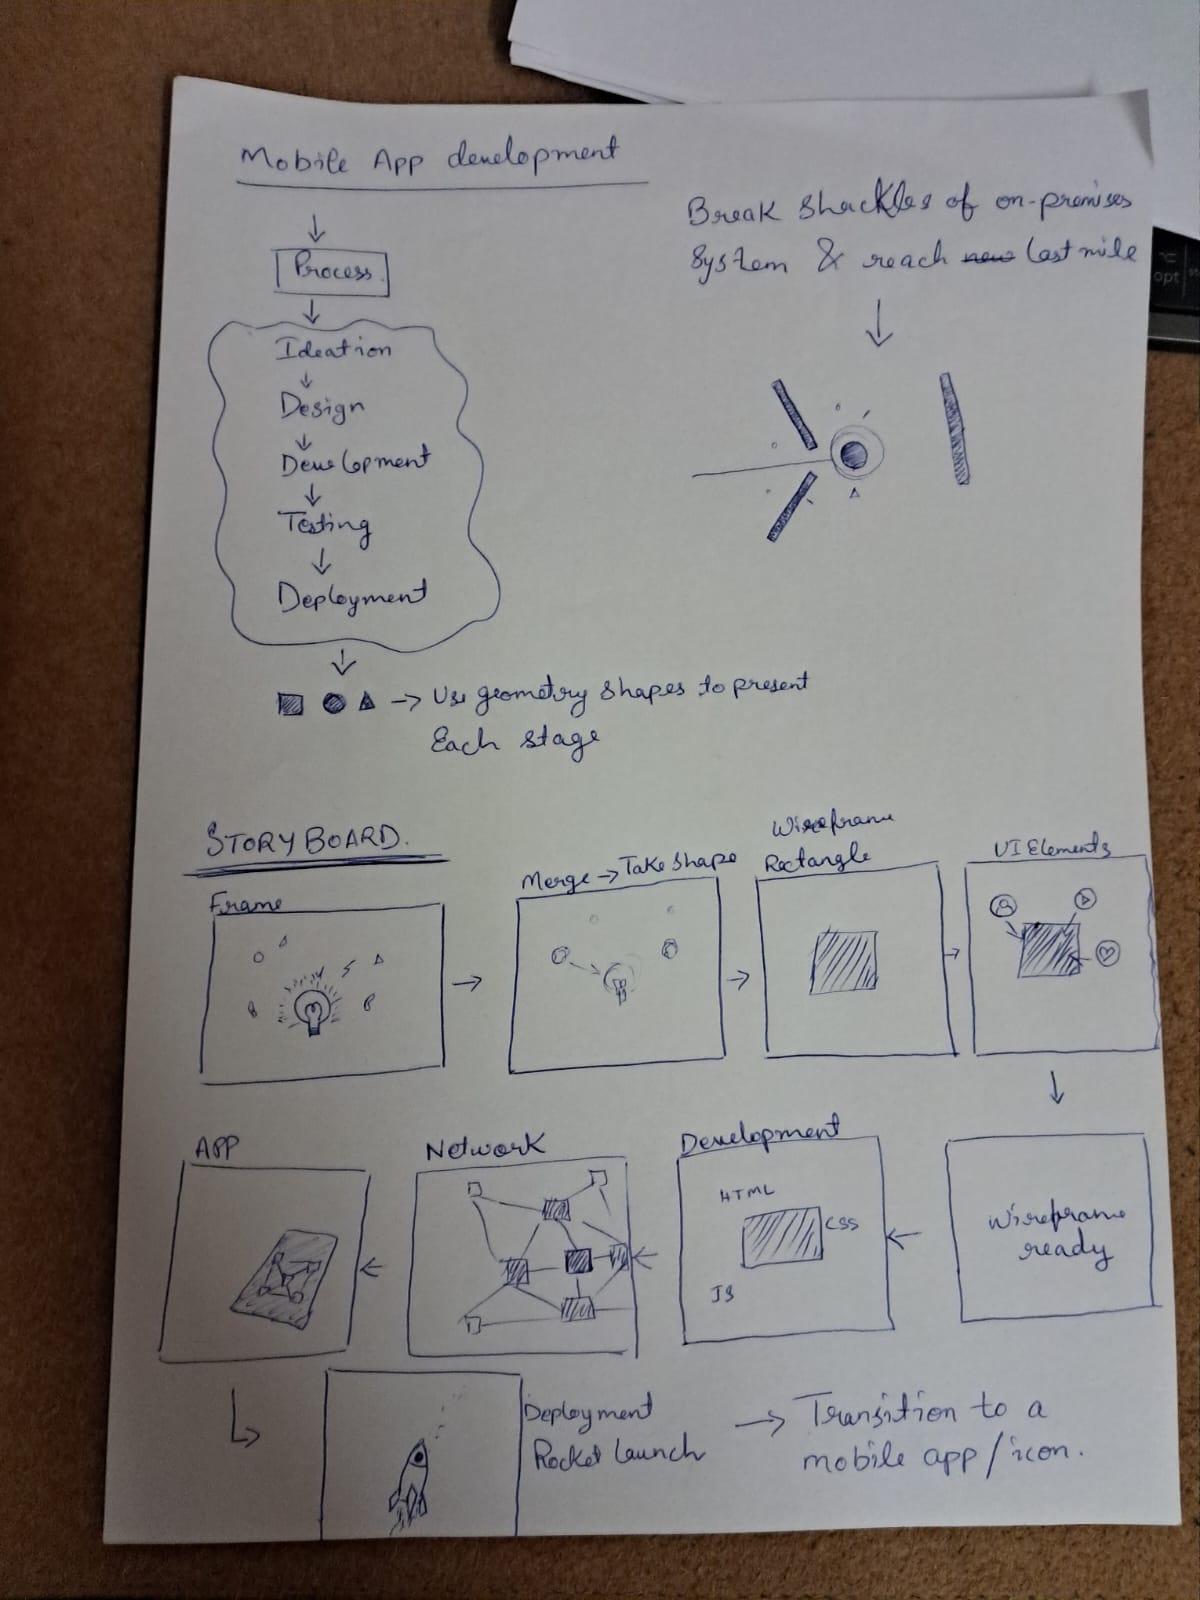 Mobile App development
Process
Ideation
Design
Development
Testing
Deployment
→ Use geometry shapes to present
Each stage
Break Shackles of on-premises
System & reach new last mile
STORY BOARD.
Frame
Merge → Take Shape
Wireframe
Rectangle
UI Elements
Wireframe
ready
Development
HTML
CSS
JS
Network
APP
Deployment
Rocket launch
→ Transition to a
mobile app/icon.
opt